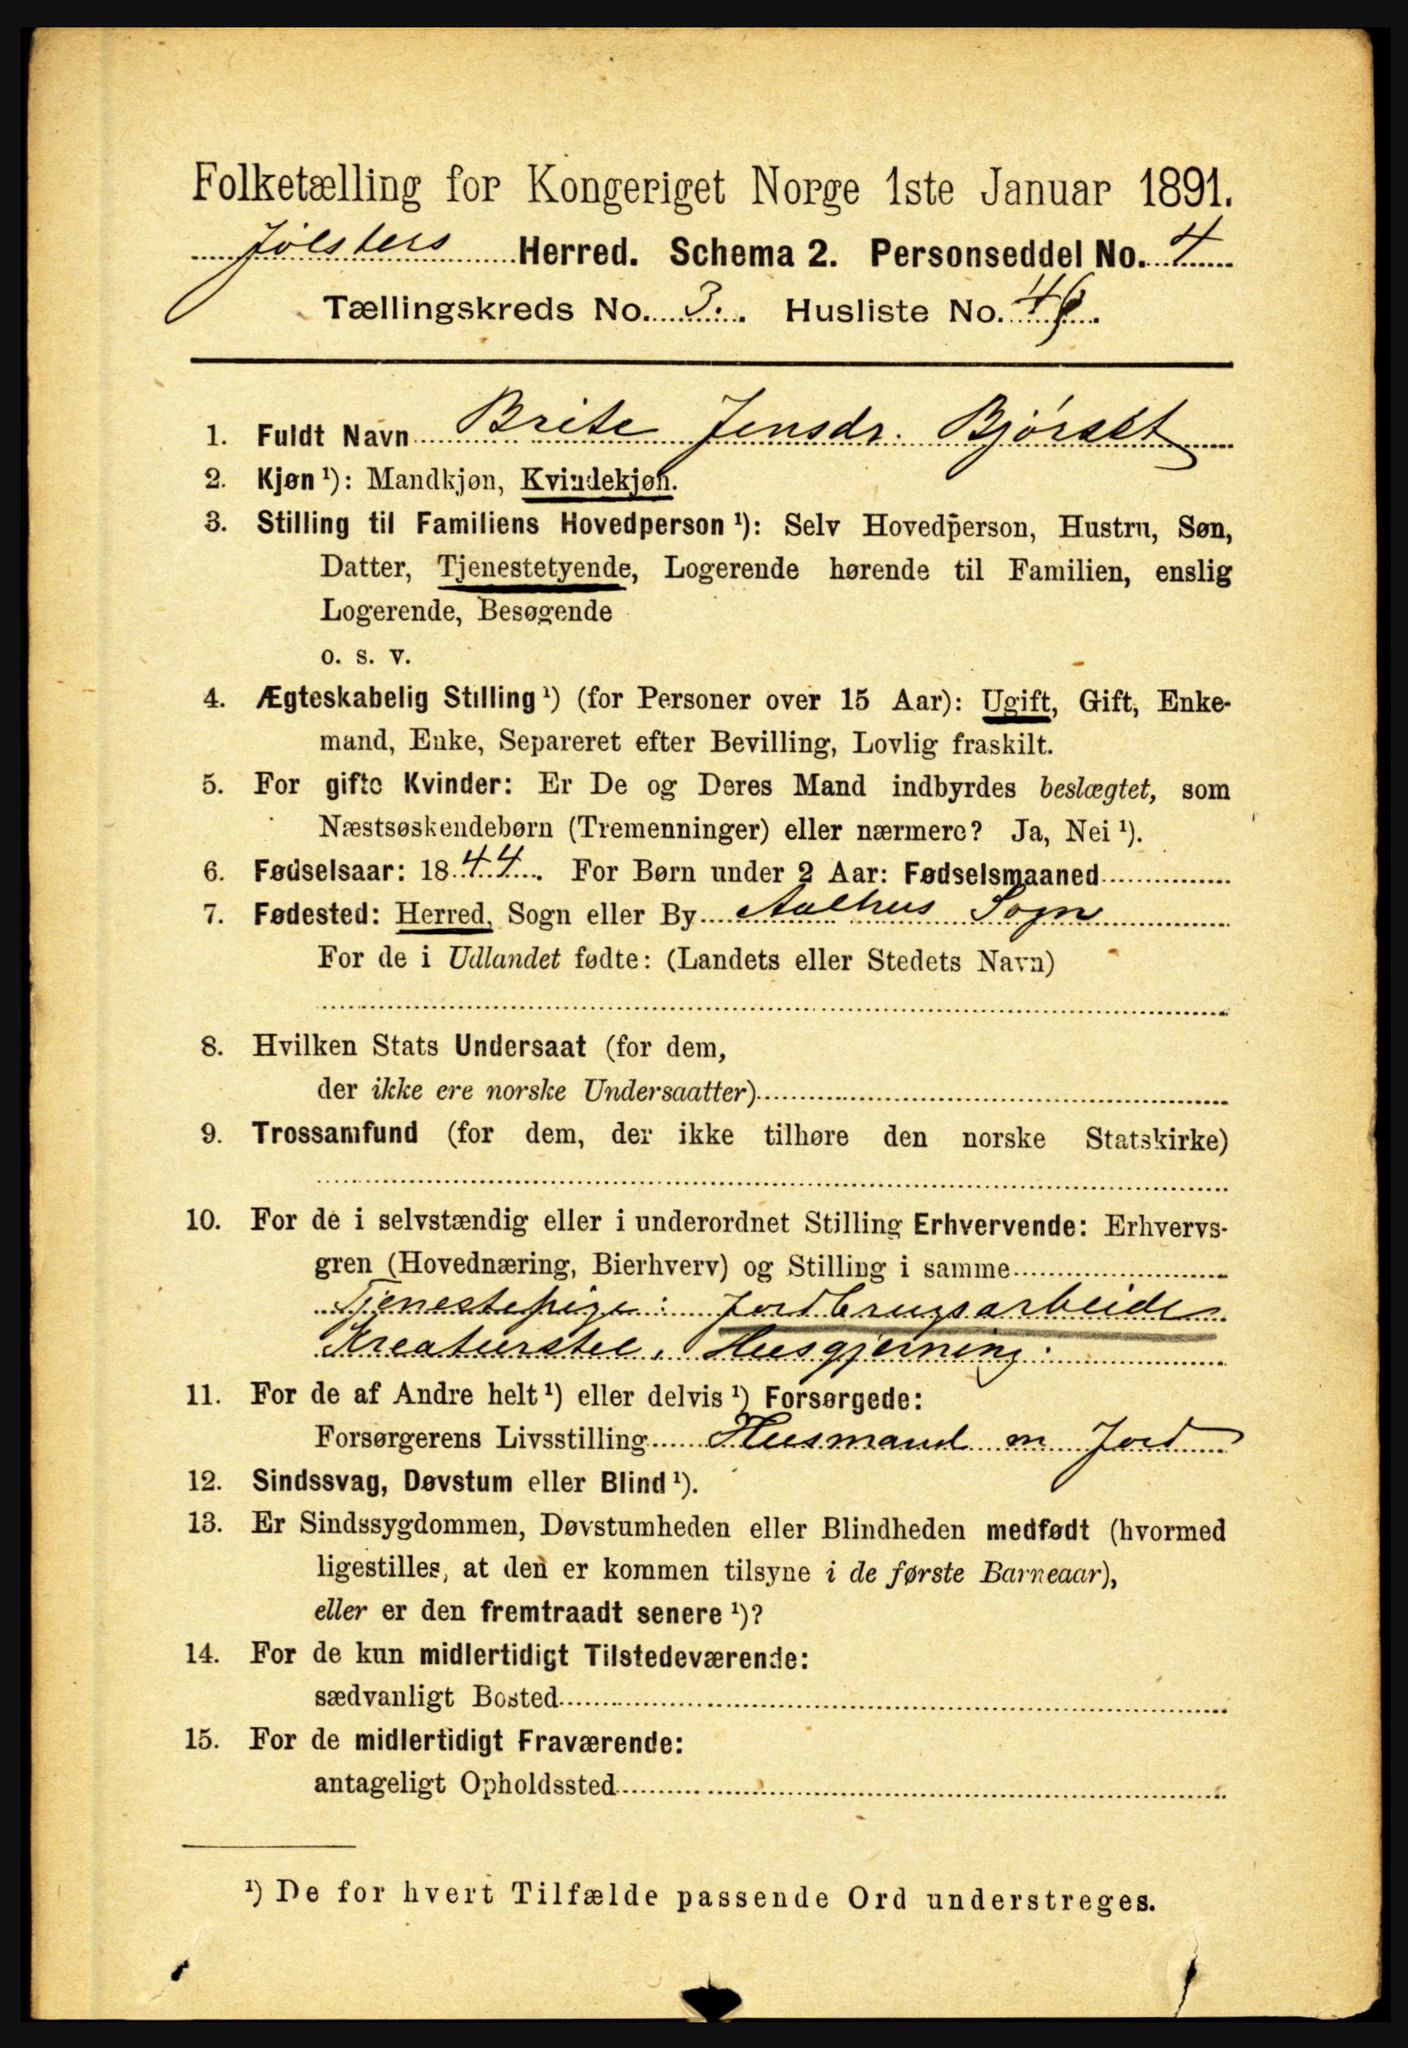 Folketælling for Kongeriget Norge 1ste Januar 1891.
Jølsters Herred. Schema 2. Personseddel No. 4
Tællingskreds No. 3. Husliste No. 46.
1. Fuldt Navn Brite Jensdr. Bjørset
2. Kjøn ¹): Mandkjøn, Kvindekjøn.
3. Stilling til Familiens Hovedperson ¹): Selv Hovedperson, Hustru, Søn,
Datter, Tjenestetyende, Logerende hørende til Familien, enslig
Logerende, Besøgende
o. s. v.
4. Ægteskabelig Stilling ¹) (for Personer over 15 Aar): Ugift, Gift, Enke-
mand, Enke, Separeret efter Bevilling, Lovlig fraskilt.
5. For gifte Kvinder: Er De og Deres Mand indbyrdes beslægtet, som
Næstsøskendebørn (Tremenninger) eller nærmere? Ja, Nei ¹).
6. Fødselsaar: 1844. For Børn under 2 Aar: Fødselsmaaned
7. Fødested: Herred, Sogn eller By Aalhus Sogn
For de i Udlandet fødte: (Landets eller Stedets Navn)
8. Hvilken Stats Undersaat (for dem,
der ikke ere norske Undersaatter)
9. Trossamfund (for dem, der ikke tilhøre den norske Statskirke)
10. For de i selvstændig eller i underordnet Stilling Erhvervende: Erhvervs-
gren (Hovednæring, Bierhverv) og Stilling i samme
Tjenestepige: Jordbrugsarbeide
Kreaturstel, Husgjerning.
11. For de af Andre helt ¹) eller delvis ¹) Forsørgede:
Forsørgerens Livsstilling Husmand m Jord
12. Sindssvag, Døvstum eller Blind ¹).
13. Er Sindssygdommen, Døvstumheden eller Blindheden medfødt (hvormed
ligestilles, at den er kommen tilsyne i de første Barneaar),
eller er den fremtraadt senere ¹)?
14. For de kun midlertidigt Tilstedeværende:
sædvanligt Bosted
15. For de midlertidigt Fraværende:
antageligt Opholdssted
¹) De for hvert Tilfælde passende Ord understreges.